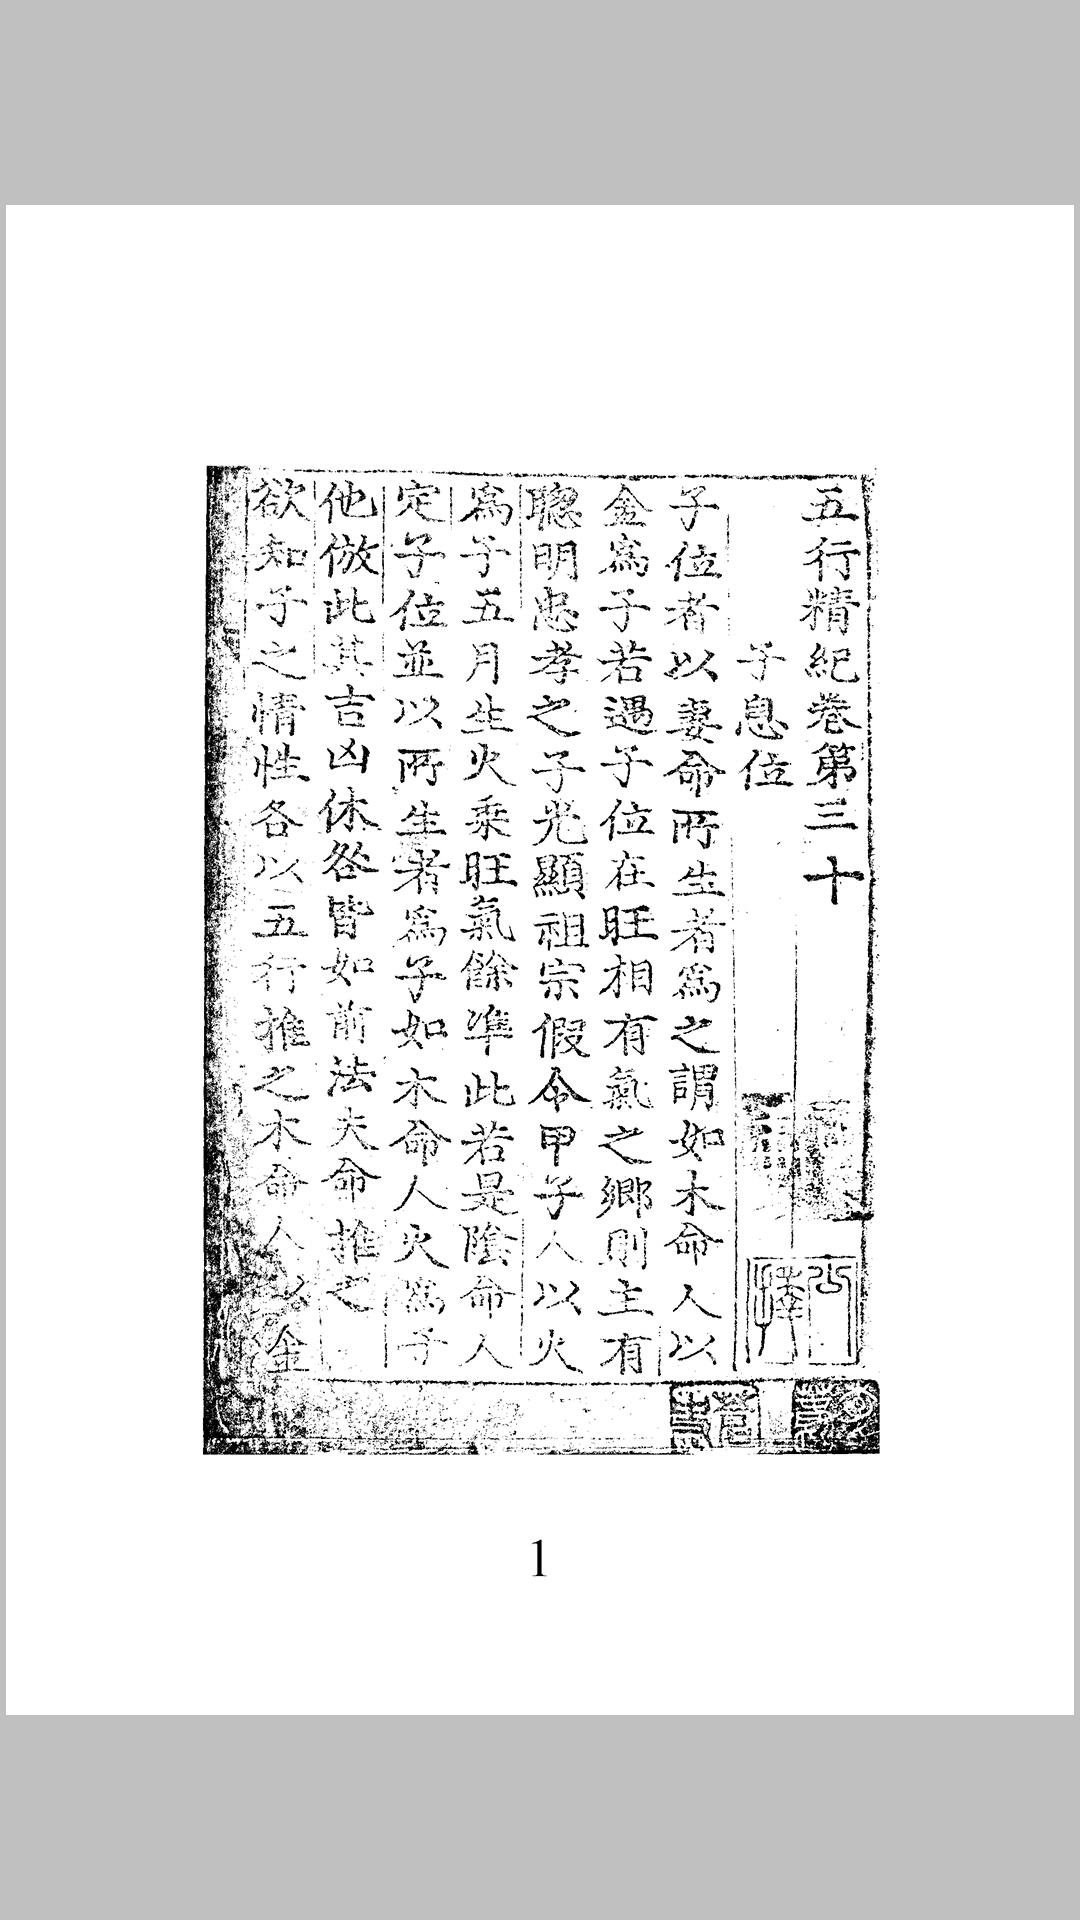 五行精紀卷第三十
子息位
子位者以妻命所生者為之謂如木命人以
金為子若遇子位在旺相有氣之鄉則主有
聰明忠孝之子光顯祖宗假令甲子人以火
為子五月生火乘旺氣餘準此若是陰命人
定子位並以所生者為子如木命人火為子
他倣此其吉凶休咎皆如前法夫命推之
欲知子之情性各以五行推之木命人以金
1